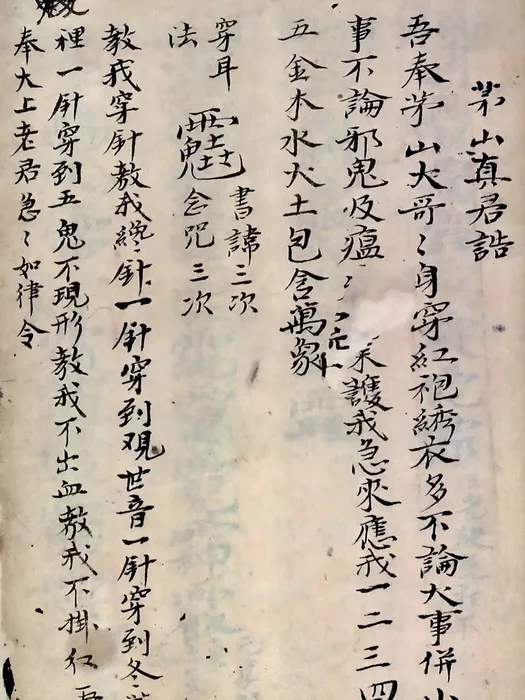 茅山真君誥
吾奉茅山大哥〻身穿紅袍綉衣多不論大事併
事不論邪鬼及瘟〻來護我急來應我一二三四
五金木水火土包含萬象
穿耳
法
書諱三次
念咒三次
教我穿針教我終針一針穿到观世音一針穿到冬
裡一針穿到五鬼不現形教我不出血教我不掛紅
奉大上老君急〻如律令